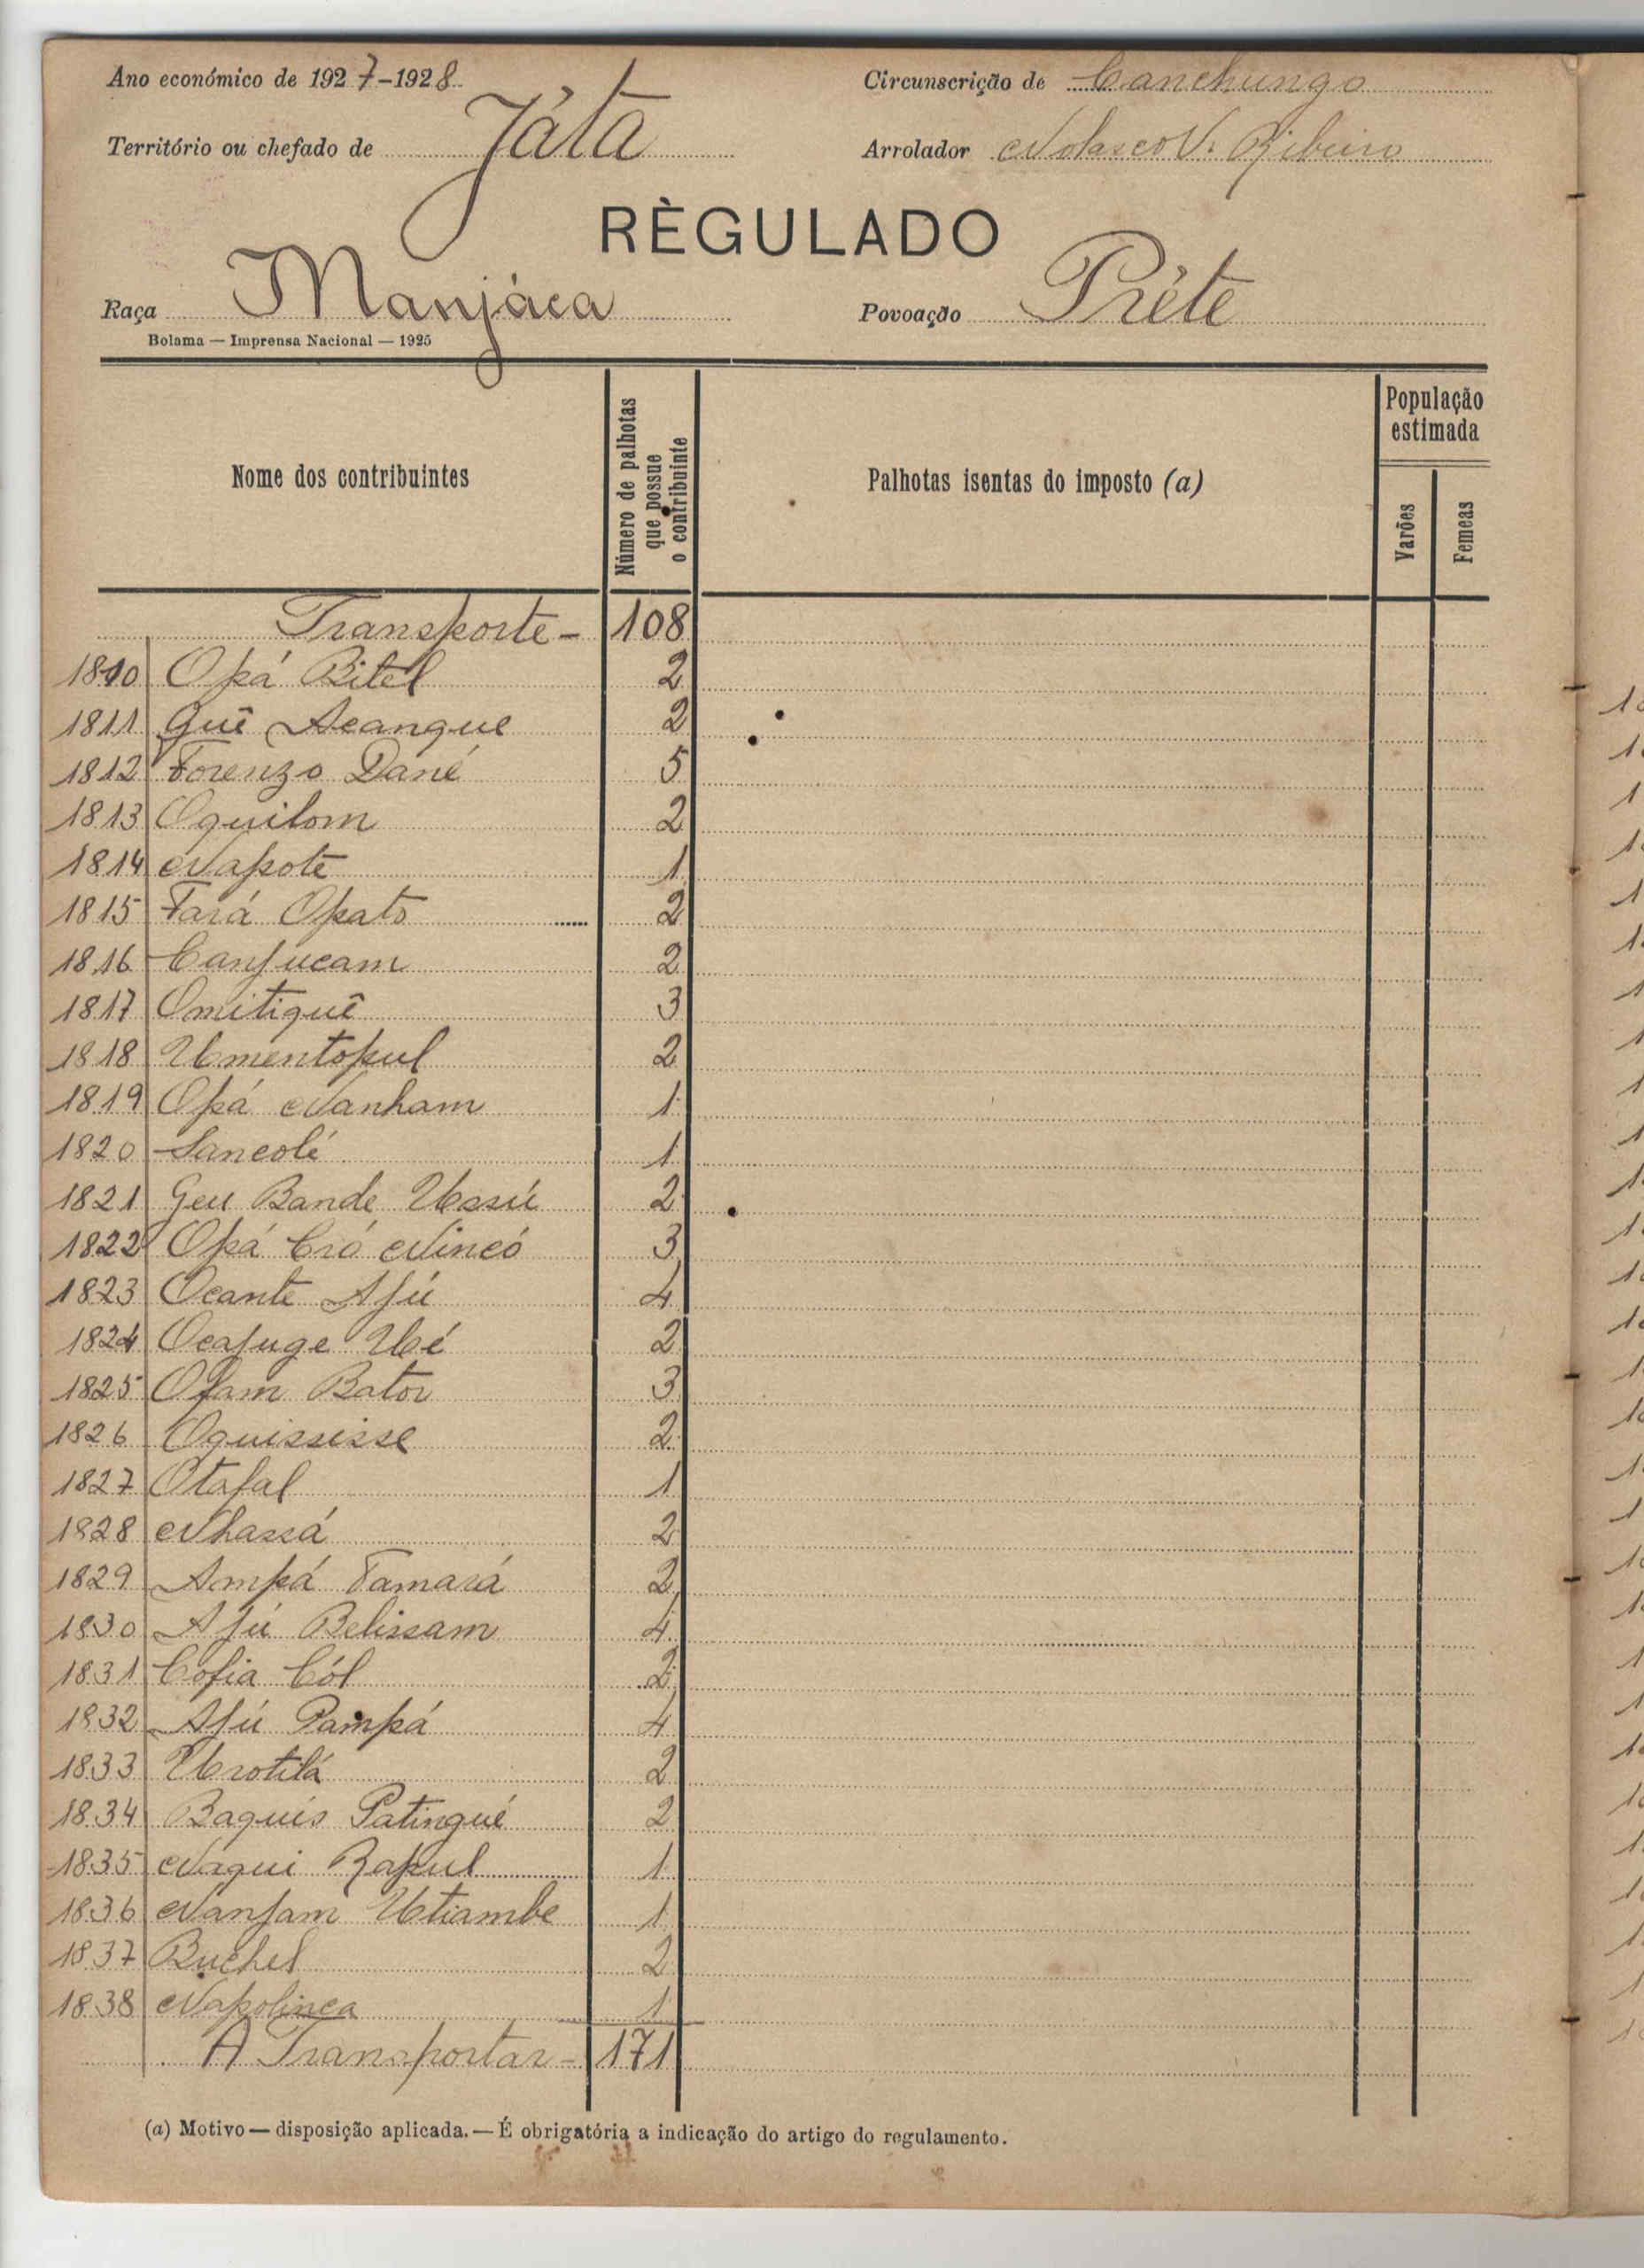 Ano económico de 1927-1928
Circunscrição de Canchungo
Território ou chefado de Játa
Arrolador Nolasco V. Ribeiro
RÈGULADO
Raça Manjáca
Povoação Préte
Bolama — Imprensa Nacional — 1925
Nome dos contribuintes
Número de palhotas que possue o contribuinte
Palhotas isentas do imposto (a)
População estimada
Varões
Femeas
Transporte - 108
1810 Opá Bitel 2
1811 Guê Acangue 2
1812 Forenzo Dané 5
1813 Oquilom 2
1814 Napote 1
1815 Fará Opato 2
1816 Canjucam 2
1817 Omitiquê 3
1818 Umentopul 2
1819 Opá Nanham 1
1820 Sancolé 1
1821 Geu Bande Ussú 2
1822 Opá Cró Nincó 3
1823 Ocante Ajú 4
1824 Ocajuge Ubé 2
1825 Ofam Bator 3
1826 Oquississe 2
1827 Otafal 1
1828 Nhassá 2
1829 Ampá Tamará 2
1830 Ajú Belissam 4
1831 Cofia Cól 2
1832 Ajú Pampá 4
1833 Urotilá 2
1834 Baquis Patingué 2
1835 Naqui Rapul 1
1836 Nanjam Utiambe 1
1837 Buchel 2
1838 Napolinca 1
A Transportar - 171
(a) Motivo — disposição aplicada. — É obrigatória a indicação do artigo do regulamento.